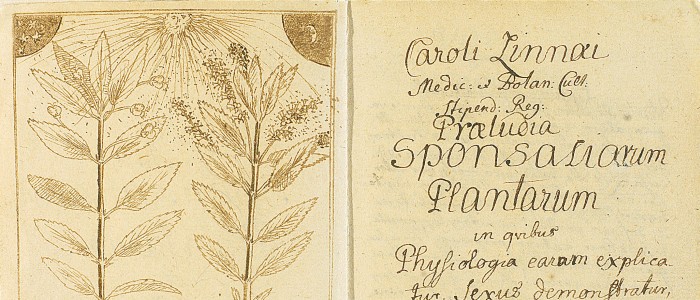 Caroli Linnæi
Medic: et Botan: Cult:
Stipend: Reg:
Præludia
Sponsaliarum
Plantarum
in qvibus
Physiologia earum explica-
tur, Sexus demonstratur,